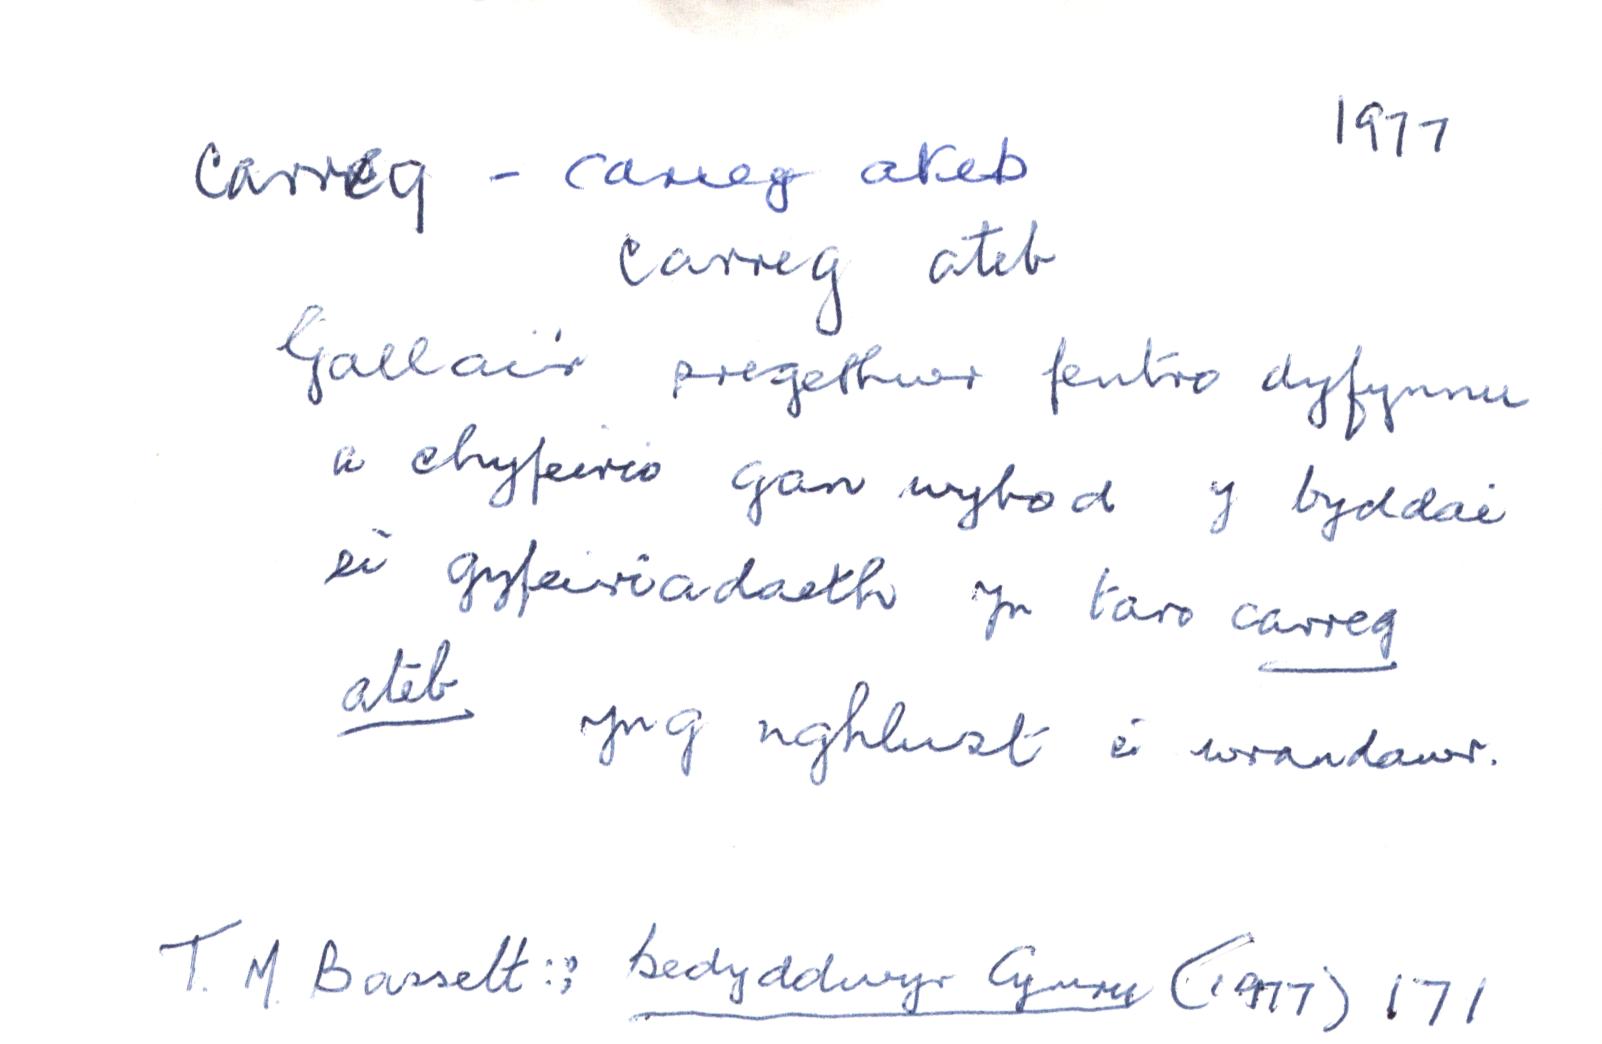 1977
Carreg - carreg ateb
carreg ateb
Gallai'r pregethwr fentro dyfynnu
a chyfeirio gan wybod y byddai
ei gyfeiriadaeth yn taro carreg
ateb yng nghlust ei wrandawr.
T. M Bassett:; Bedyddwyr Cymru (1977) 171